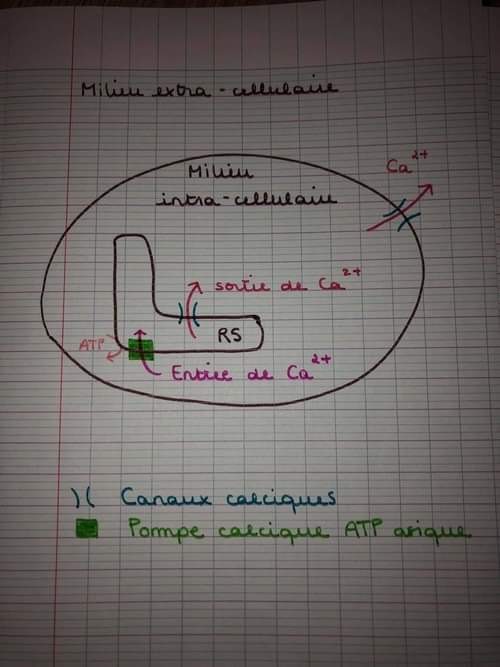 Milieu extra-cellulaire
Ca²⁺
Milieu
intra-cellulaire
sortie de Ca²⁺
RS
ATP
Entrée de Ca²⁺
Canaux calciques
Pompe calcique ATP asique